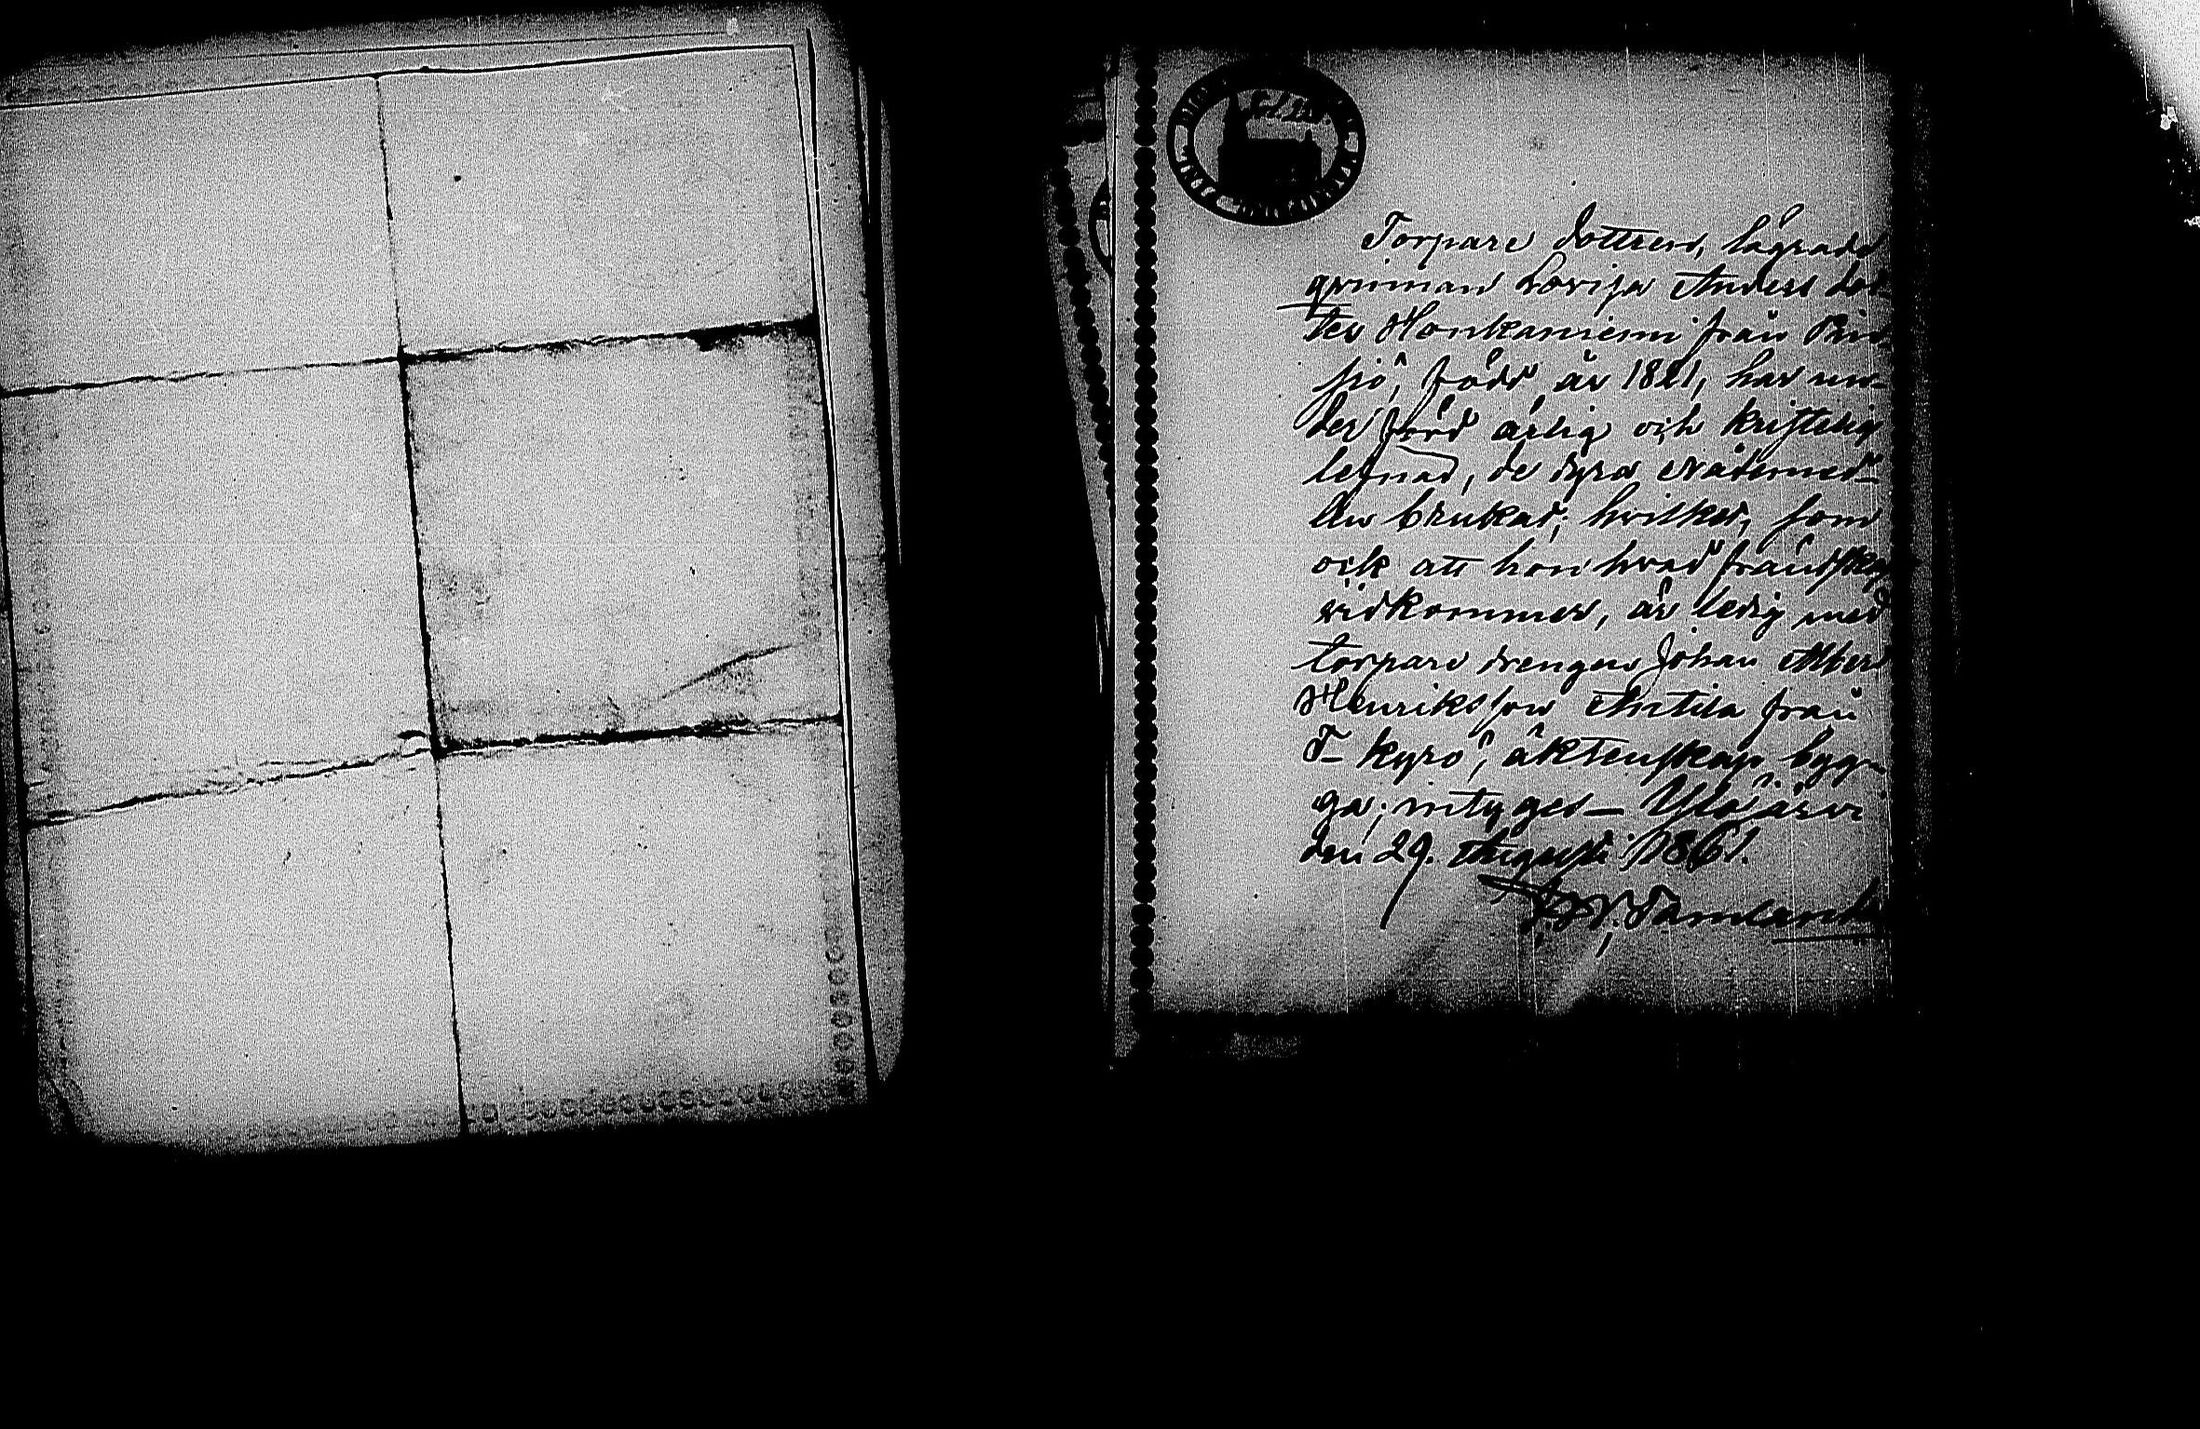 Torpare dottren, lägrade
qvinnan Lovisa Anders dot-
ter Honkaniemi från
sjö, född år 1821, har un-
der förd ärlig och kristelig
lefnad, de dyra Nådemed-
len brukat, hvilket, som
ock att hon hvad frändskap
vidkommer, är ledig med
torpare drengen Johan Albert
Henriksson Anttila från
T-kyro, äktenskap byg-
ga, intygas — Ylöjärvi
den 29. Augusti 1861.